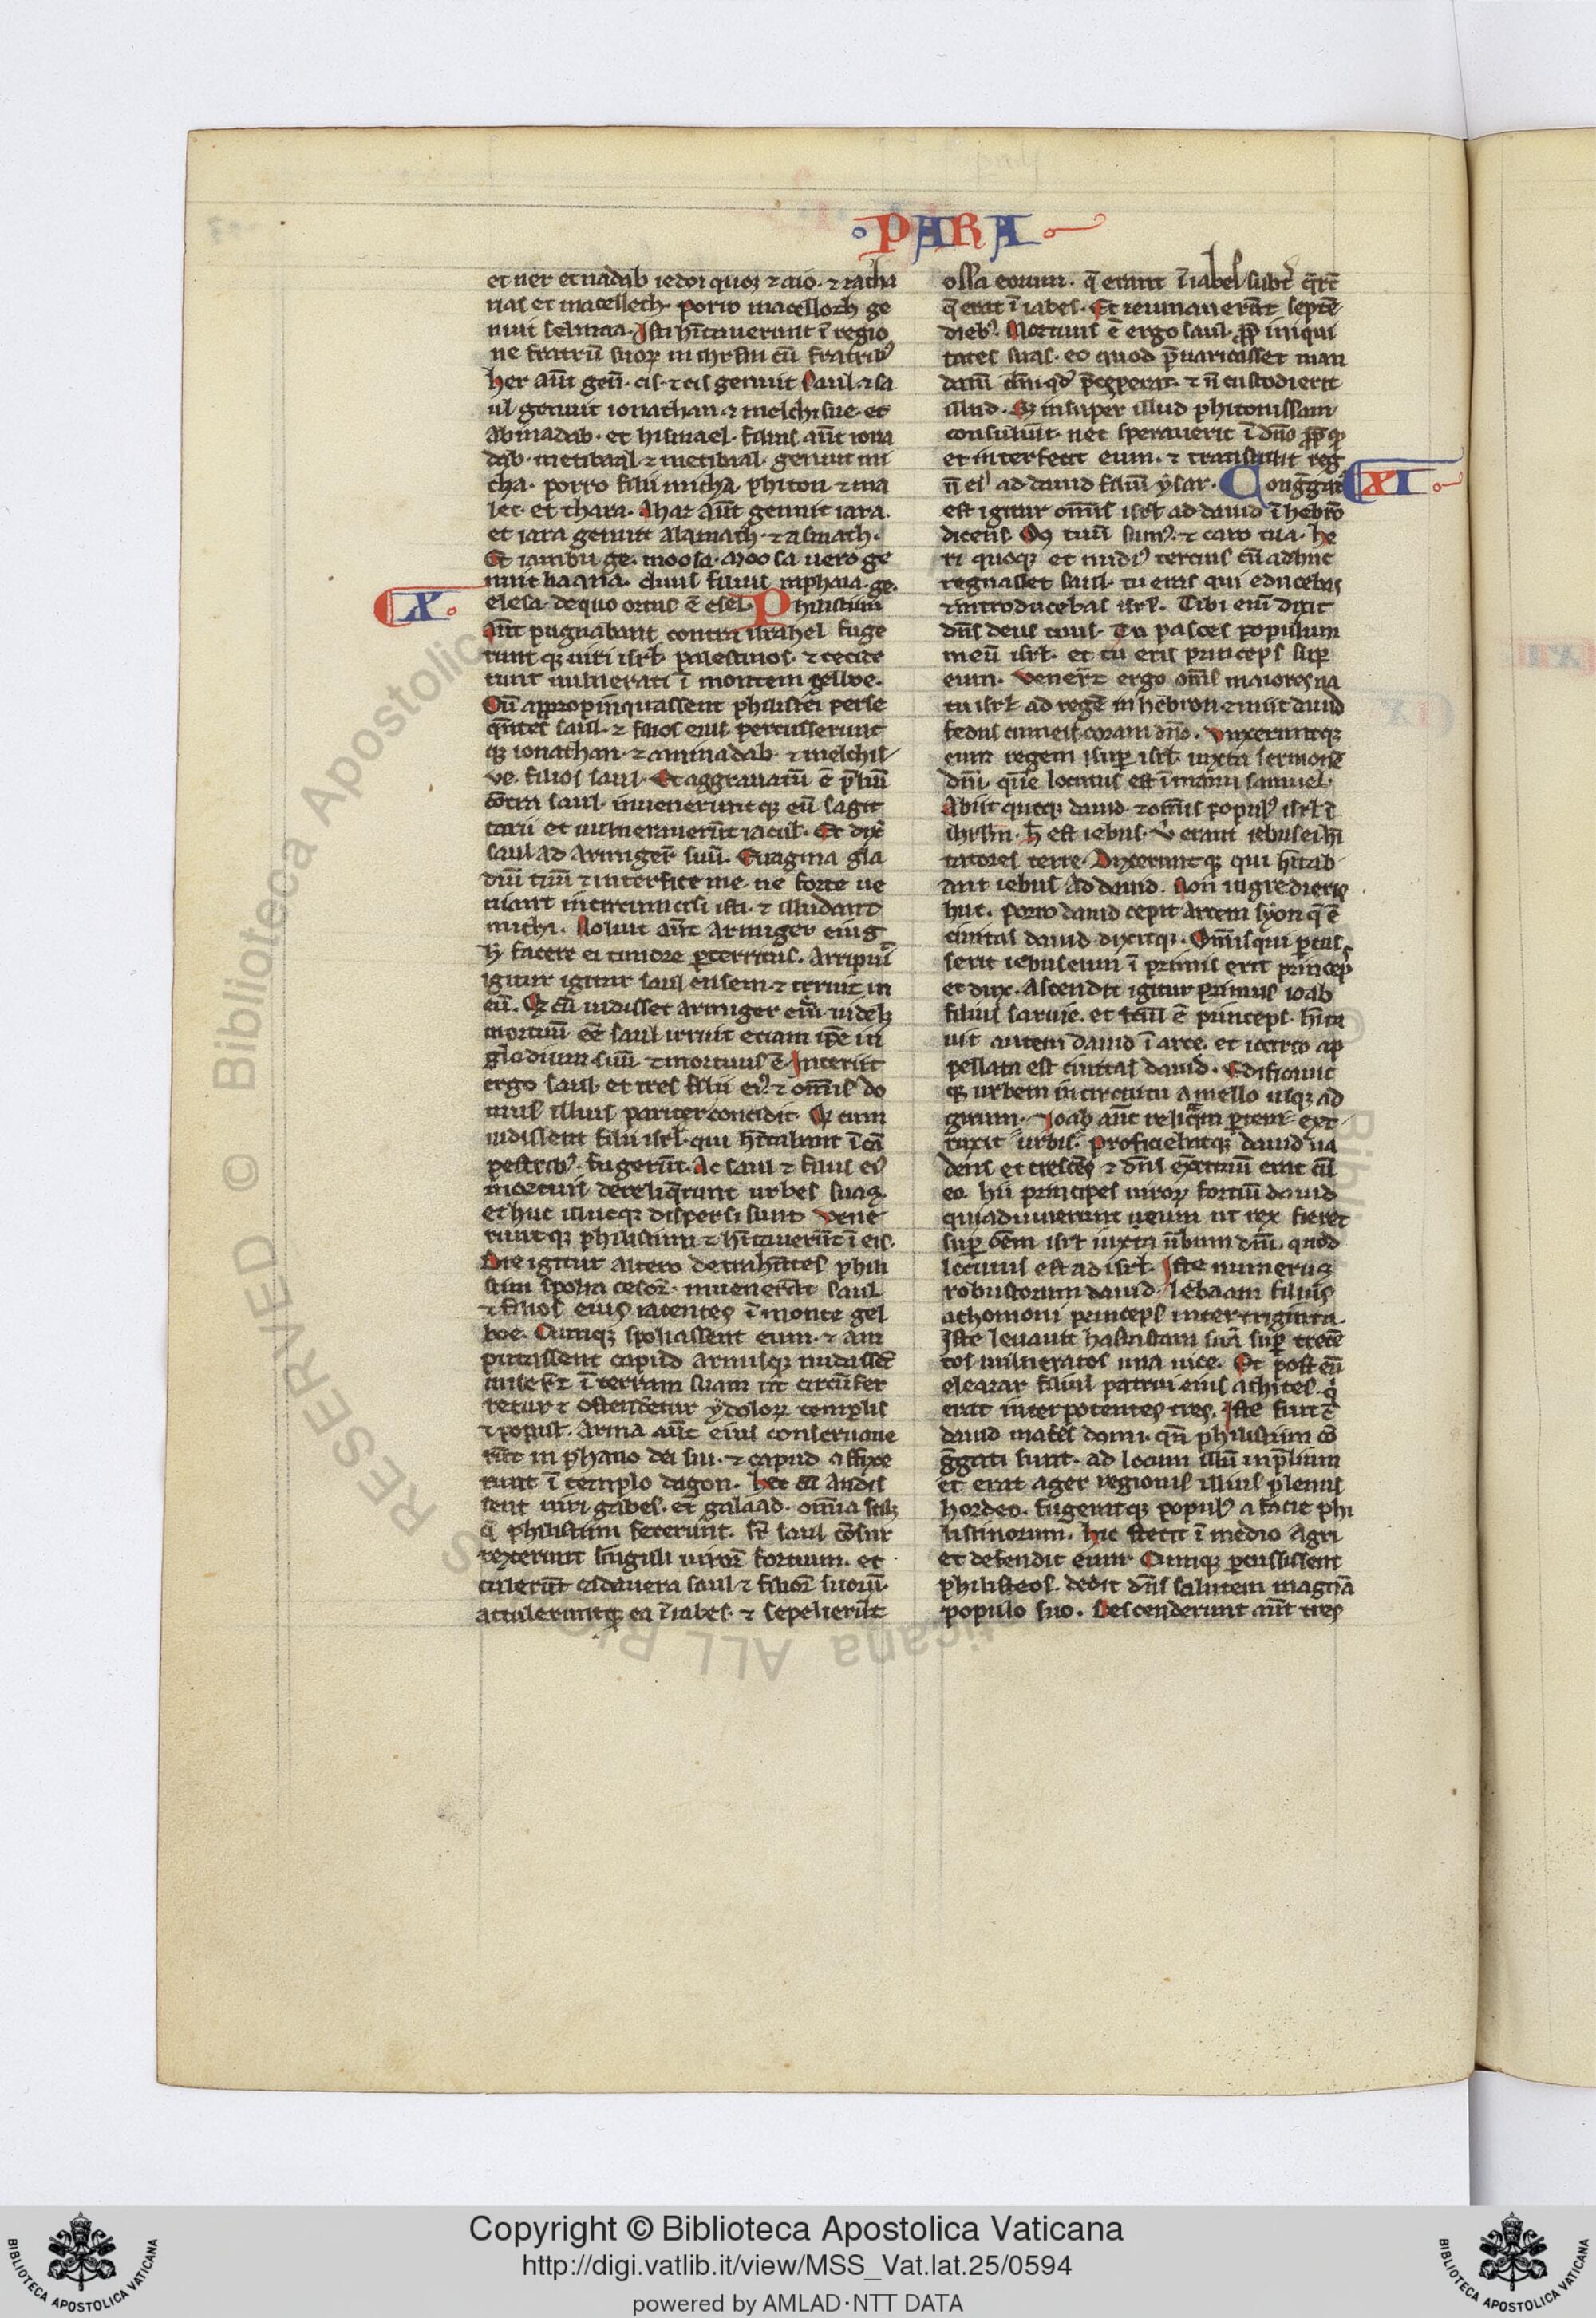 PARA
et ner et nadab iedor quoq; ⁊ aio. ⁊ zacha
rias et macelloth. Porro macelloth ge
nuit semmaa. Isti hītauerunt ī regio
ne fratrū suoꝝ in ihrłm cū fratrib⁹
her aūt genͥ. cis. ⁊ cis genuit saul. ⁊ sa
ul genuit ionathan ⁊ melchisue. et
Abinadab. et hismael. filius aūt iona
dab. metibaal ⁊ metibaal. genuit mi
cha. porro filii micha. phiton ⁊ ma
lec. et thara. Ahaz aūt genuit iara.
et iara genuit alamath. ⁊ asmath.
Et iambri ge. moosa. moosa uero ge
nuit baana. cuius filius raphaia. ge.
X
elesa. de quo ortus ē esel. Philistiim
aūt pugnabant contra israhel fuge
runt q; uiri isrł. palestinos. ⁊ cecide
runt uulnerati ī montem gelboe.
Cū appropinquassent philistei perse
q̄ntes saul. ⁊ filios eius percusserunt
q; ionathan. ⁊ aminadab. ⁊ melchis
ue. filios saul. Et aggrauatū ē p̄liū
cōtra saul. inuenerunt q; eū sagit
tarii et uulnerauerūt iacul. Et dix͛
saul ad Armigeꝝ suū. Euagina gla
diū tuū ⁊ interfice me. ne forte ue
niant incircūcisi isti. ⁊ illudant
michi. Noluit aūt Armiger eius
h͛ facere ei timore ꝑterritus. Arripuit
igitur igitur saul ensem. ⁊ irruit in
eū. Q͛ cū uidisset armiger ei⁹. uidelꝫ
mortuū eē saul irruit etiam ip̄e in
gladium suū ⁊ mortuus ē. Interiit
ergo saul. et tres filii ei⁹. ⁊ om̄is do
mus illius pariter concidit. Q͛ cum
uidissent filii isrł. qui hītabant ī cā
pestrib⁹. fugerūt. Ac saul ⁊ filiis ei⁹
mortuis dereliq̄runt urbes suas.
et huc illucq; dispersi sunt. Vene
runt q; philistiim ⁊ hītauerūt ī eis.
Die igitur altero detrahētes phili
stim spolia cesoꝝ. inuenerūt saul
⁊ filios eius iacentes ī monte gel
boe. Cumq; spoliassent eum. ⁊ am
putassent capud armisq; nudassēt
miserūt ī terram suam ut circūfer
retur ⁊ ostenderetur ydoloꝝ templis
⁊ populis. Arma aūt eius conseruaue
rūt in phano dei sui. ⁊ capud affixe
runt ī templo dagon. Hec cū audis
sent uiri gabes. et galaad. omnia scilꝫ
q̄ philistiim fecerunt. sr̄ saul cōsur
rexerunt singuli uiroꝝ fortium. et
tulerūt cadauera saul ⁊ filioꝝ suoꝝ.
attulerunt q; ea ī iabes. ⁊ sepelierūt
ossa eorum. q̄ erant ī iabes subt͛ q͛rcū
q̄ erat ī iabes. Et ieiunauerūt septē
dieb⁹. Mortuus ē ergo saul. ꝓp iniqui
tates suas. eo quod p̄uaricasset man
datū dn̄i qd̄ p̄ceperat. ⁊ n̄ custodierit
illud. Sꝫ insuper illud phitonissam
consuluit. nec sperauerit ī dn̄o ꝓpt q
et interfecit eum. ⁊ transtulit reg
n̄ ei⁹ ad dauid filiū ysai. Congregat⁹
XI
est igitur om̄is isrł ad dauid ī hebrō
dicens. Os tuū sum⁹. ⁊ caro tua. he
ri quoq; et nudi⁹ tercius cū adhuc
regnasset saul. tu eras qui educebas
⁊ introducebas isrł. Tibi enī dixit
dn̄s deus tuus. Tu pasces populum
meū isrł. et tu eris princeps sup
eum. Venerūt ergo om̄s maiores na
tu isrł ad regē in hebron ⁊ iniit dauid
fedus cum eis coram dn̄o. Vnxeruntq;
eum regem isup isrł. iuxta sermonē
dn̄i. quē locutus est ī manu samuel.
Abiit quoq; dauid ⁊ om̄is popul⁹ isrł ī
ihrłm. h̄ est iebus. ū erant iebusei hī
tatores terre. Dixerunt q; qui hītab
ant iebus ad dauid. Non ingredieris
huc. Porro dauid cepit arcem syon q̄ ē
ciuitas dauid. dixitq;. Omnis qui ꝑcus
serit iebuseum ī primis erit princeps
et dux. Ascendit igitur primus ioab
filius saruie. et fcūs ē princeps. hīta
uit autem dauid ī arce. et idcirco ap
pellata est ciuitas dauid. Edificauit
q; urbem in circuitu a mello usq; ad
girum. Ioab aūt reliq̄m ꝑtem ext
ruxit urbis. Proficiebatq; dauid ua
dens et crescēs ⁊ dn̄s exercituū erat cū
eo. hii principes uiroꝝ fortiū dauid
qui adiuuerunt ueum ut rex fieret
sup oēm isrł iuxta ūbum dn̄i. quod
locutus est ad isrł. Iste numerus
robustorum dauid. Iesbaam filius
achomoni princeps inter triginta.
Iste leuauit hastistam suā sup trecē
tos uulneratos una uice. Et post eū
eleazar filius patrui eius achites. q̇
erat inter potentes tres. Iste fuit c̄
dauid mates domi. qn̄ philistiim cō
g͛gati sunt. ad locum illū in p̄lium
et erat ager regionis illius plenus
hordeo. fugeratq; popul⁹ a facie phi
listinorum. hic stetit ī medio agri
et defendit eum. Cumq; ꝑcussissent
philisteos. dedit dn̄s salutem magnā
populo suo. Descenderunt aūt tres
Copyright © Biblioteca Apostolica Vaticana
http://digi.vatlib.it/view/MSS_Vat.lat.25/0594
powered by AMLAD·NTT DATA